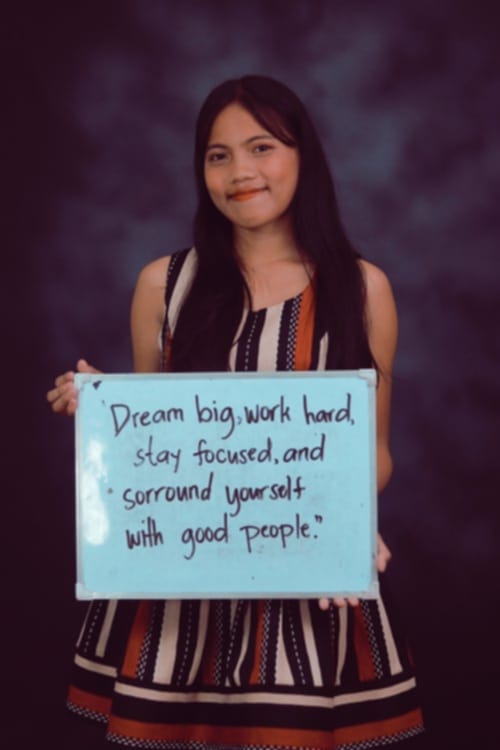 "Dream big, work hard,
stay focused, and
sorround yourself
with good people."